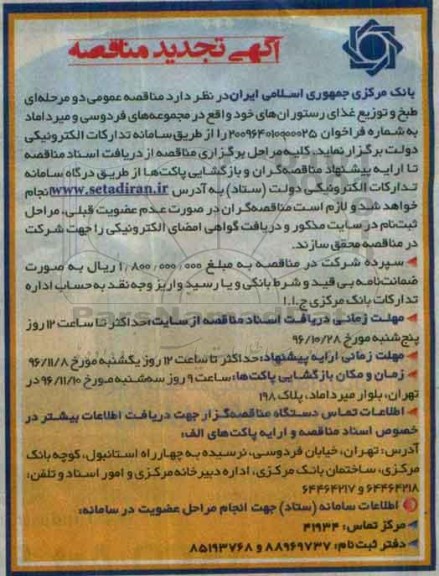 آگهی تجدید مناقصه
بانک مرکزی جمهوری اسلامی ایران در نظر دارد مناقصه عمومی دو مرحله‌ای
طبخ و توزیع غذای رستوران‌های خود واقع در مجموعه‌های فردوسی و میرداماد
به شماره فراخوان ۲۰۰۹۶۴۰۱۰۰۰۰۰۲۵ را از طریق سامانه تدارکات الکترونیکی
دولت برگزار نماید. کلیه مراحل برگزاری مناقصه از دریافت اسناد مناقصه
تا ارایه پیشنهاد مناقصه‌گران و بازگشایی پاکت‌ها از طریق درگاه سامانه
تدارکات الکترونیکی دولت (ستاد) به آدرس www.setadiran.ir انجام
خواهد شد و لازم است مناقصه‌گران در صورت عدم عضویت قبلی، مراحل
ثبت‌نام در سایت مذکور و دریافت گواهی امضای الکترونیکی را جهت شرکت
در مناقصه محقق سازند.
سپرده شرکت در مناقصه به مبلغ ۱٫۸۰۰٫۰۰۰٫۰۰۰ ریال به صورت
ضمانت‌نامه بی قید و شرط بانکی و یا رسید واریز وجه نقد به حساب اداره
تدارکات بانک مرکزی ج.ا.ا
مهلت زمانی دریافت اسناد مناقصه از سایت: حداکثر تا ساعت ۱۲ روز
پنج‌شنبه مورخ ۹۶/۱۰/۲۸
مهلت زمانی ارایه پیشنهاد: حداکثر تا ساعت ۱۲ روز یکشنبه مورخ ۹۶/۱۱/۸
زمان و مکان بازگشایی پاکت‌ها: ساعت ۹ روز سه‌شنبه مورخ ۹۶/۱۱/۱۰ در
تهران، بلوار میرداماد، پلاک ۱۹۸
اطلاعات تماس دستگاه مناقصه‌گزار جهت دریافت اطلاعات بیشتر در
خصوص اسناد مناقصه و ارایه پاکت‌های الف:
آدرس: تهران، خیابان فردوسی، نرسیده به چهارراه استانبول، کوچه بانک
مرکزی، ساختمان بانک مرکزی، اداره دبیرخانه مرکزی و امور اسناد و تلفن:
۶۴۴۶۴۲۱۸ و ۶۴۴۶۴۲۱۷
اطلاعات سامانه (ستاد) جهت انجام مراحل عضویت در سامانه:
مرکز تماس: ۴۱۹۳۴
دفتر ثبت‌نام: ۸۸۹۶۹۷۳۷ و ۸۵۱۹۳۷۶۸